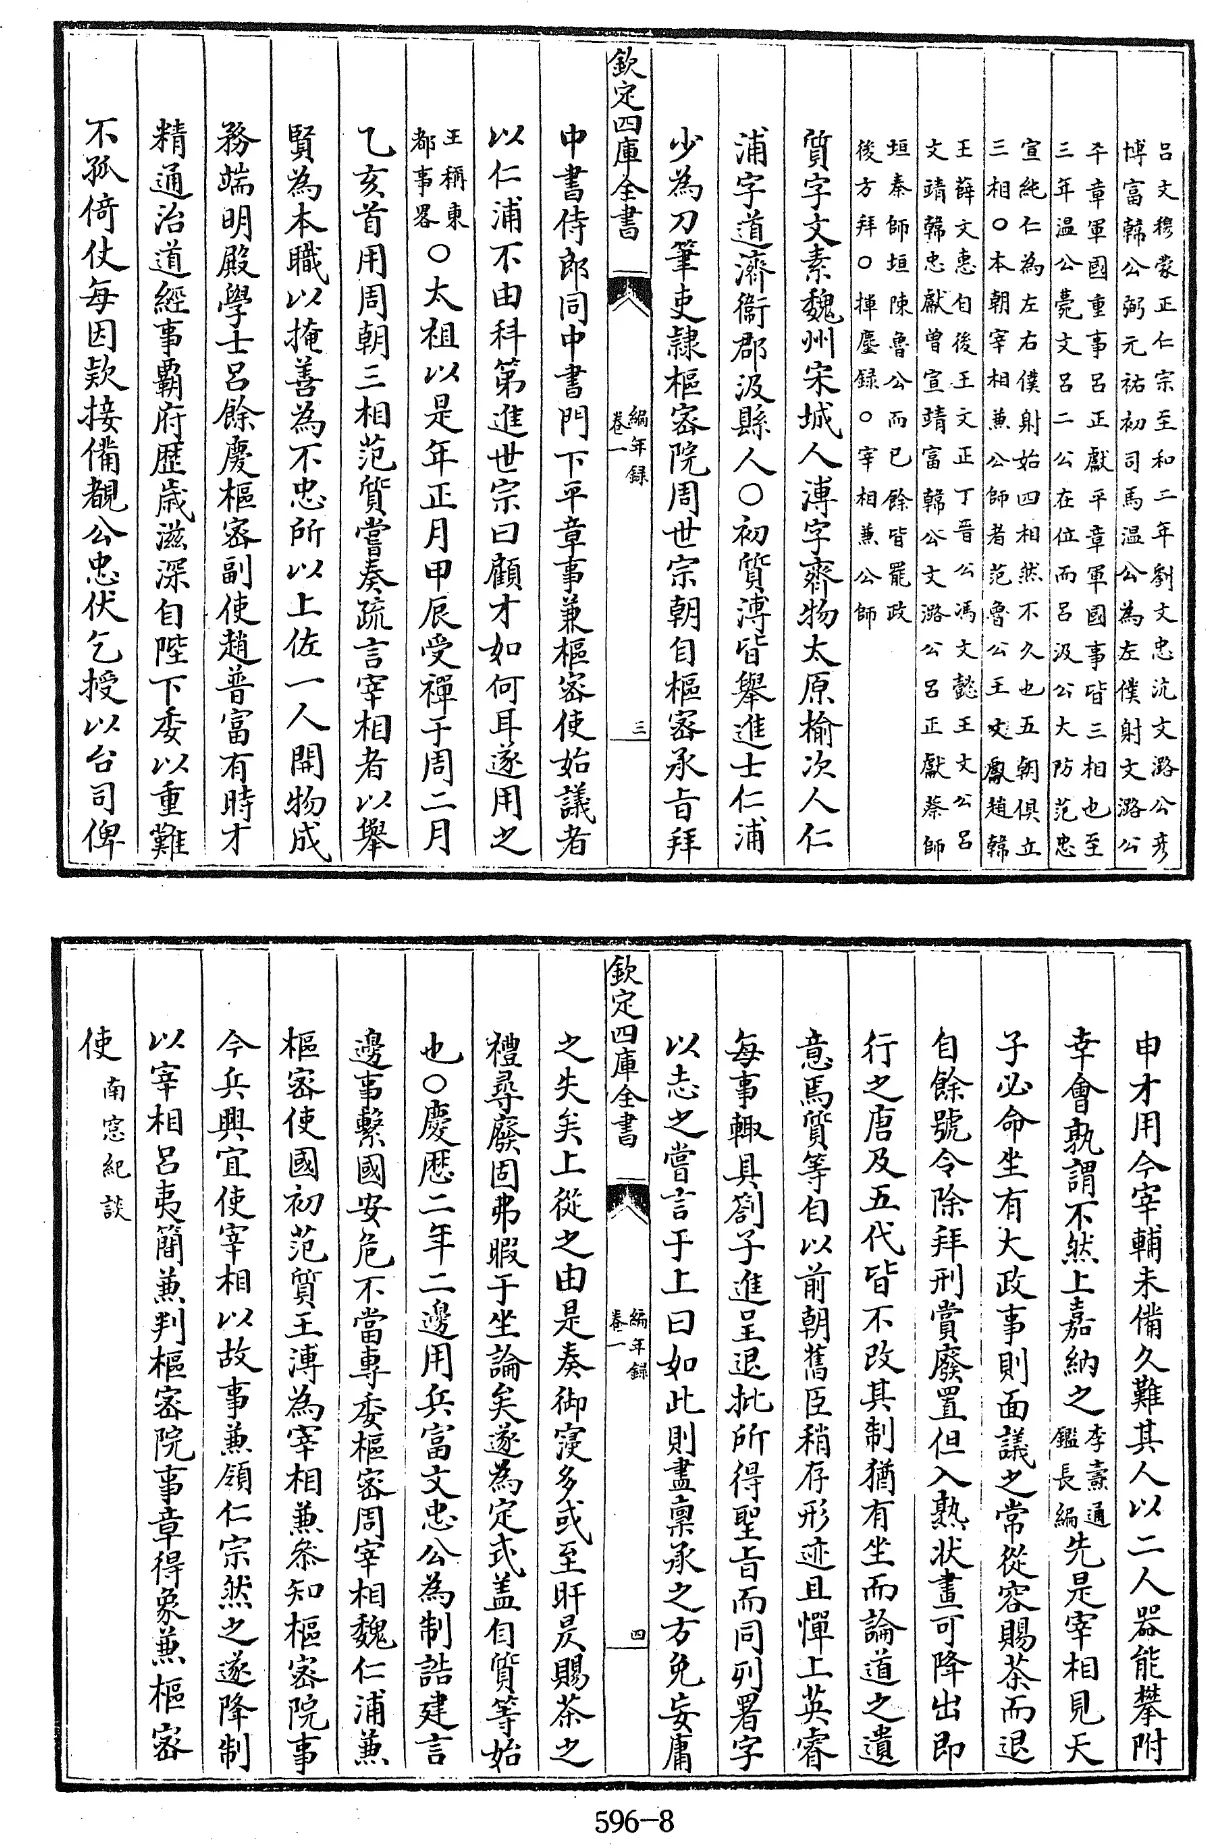 呂文穆蒙正仁宗至和二年劉文忠沆文潞公彦
博富韓公弼元祐初司馬温公為左僕射文潞公
平章軍國重事呂正獻平章軍國事皆三相也至
三年温公薨文呂二公在位而呂汲公大防范忠
宣純仁為左右僕射始四相然不久也五朝俱立
三相○本朝宰相兼公師者范魯公王文獻趙韓
王薛文惠自後王文正丁晉公馮文懿王文公呂
文靖韓忠獻曾宣靖富韓公文潞公呂正獻蔡師
垣秦師垣陳魯公而已餘皆罷政
後方拜○揮麈録○宰相兼公師
質字文素魏州宋城人溥字齊物太原榆次人仁
浦字道濟衞郡汲縣人○初質溥皆舉進士仁浦
少為刀筆吏隸樞密院周世宗朝自樞密承旨拜
欽定四庫全書
編年録
卷一
三
中書侍郎同中書門下平章事兼樞密使始議者
以仁浦不由科第進世宗曰顧才如何耳遂用之
王稱東
都事畧
○太祖以是年正月甲辰受禪于周二月
乙亥首用周朝三相范質嘗奏疏言宰相者以舉
賢為本職以掩善為不忠所以上佐一人開物成
務端明殿學士呂餘慶樞密副使趙普富有時才
精通治道經事霸府歴歳滋深自陛下委以重難
不孤倚仗每因欵接備覩公忠伏乞授以台司俾
申才用今宰輔未備久難其人以二人器能攀附
幸會孰謂不然上嘉納之
李燾通
鑑長編
先是宰相見天
子必命坐有大政事則面議之常從容賜茶而退
自餘號令除拜刑賞廢置但入熟状畫可降出即
行之唐及五代皆不改其制猶有坐而論道之遺
意焉質等自以前朝舊臣稍存形迹且憚上英睿
每事輙具劄子進呈退批所得聖旨而同列署字
以志之嘗言于上曰如此則盡稟承之方免妄庸
欽定四庫全書
編年録
卷一
四
之失矣上從之由是奏御寖多或至旰昃賜茶之
禮尋廢固弗暇于坐論矣遂為定式盖自質等始
也○慶歴二年二邊用兵富文忠公為制誥建言
邊事繫國安危不當專委樞密周宰相魏仁浦兼
樞密使國初范質王溥為宰相兼叅知樞密院事
今兵興宜使宰相以故事兼領仁宗然之遂降制
以宰相呂夷簡兼判樞密院事章得象兼樞密
使
南窓紀談
596-8